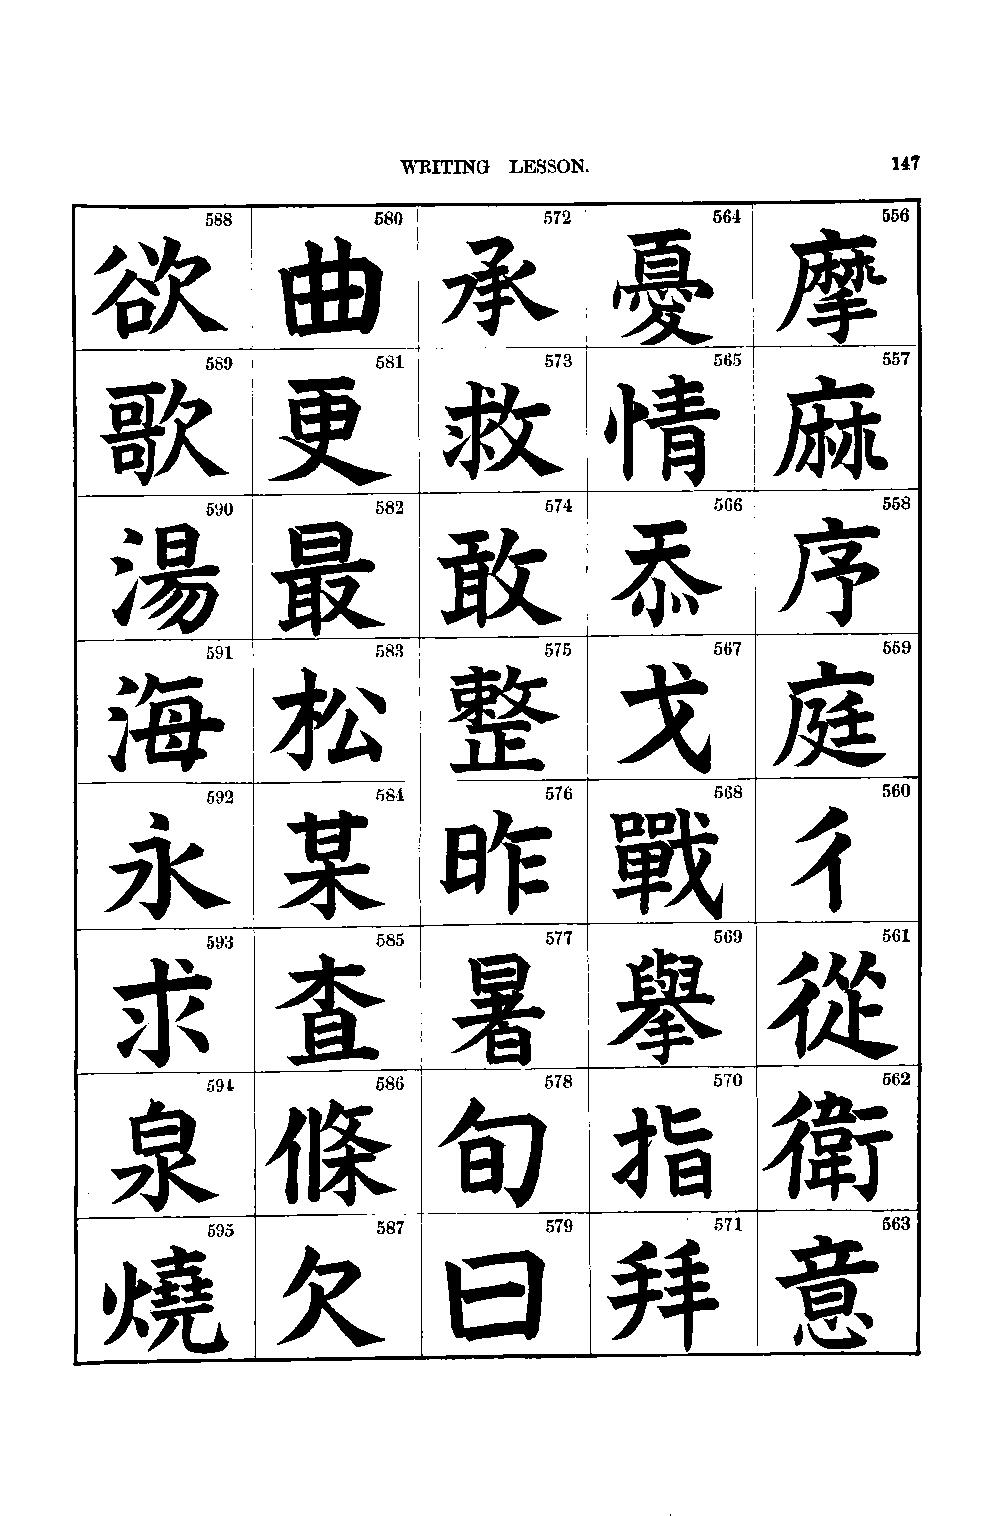 WRITING LESSON. 147
556 摩
557 麻
558 序
559 庭
560 彳
561 從
562 衛
563 意
564 憂
565 情
566 忝
567 戈
568 戰
569 擧
570 指
571 拜
572 承
573 救
574 敢
575 整
576 昨
577 暑
578 旬
579 曰
580 曲
581 更
582 最
583 松
584 某
585 査
586 條
587 欠
588 欲
589 歌
590 湯
591 海
592 永
593 求
594 泉
595 燒